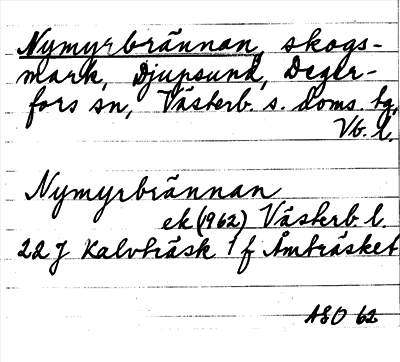 Nymyrbrännan, skogs-
mark, Djupsund, Deger-
fors sn, Västerb. s. doms. tg,
Vb. l.
Nymyrbrännan
ek (1962) Västerb. l.
22 J Kalvträsk 1 f Åmträsket
ASO 62